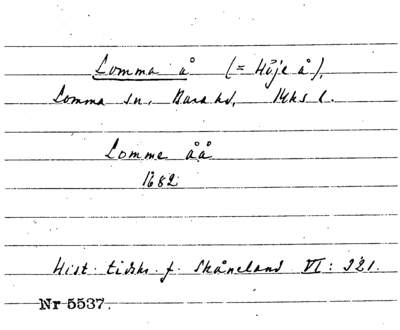 Lomma å (= Höje å),
Lomma sn, Bara hd, Mhs l.
Lomme åå
1682
Hist. tidskr. f. Skåneland VI: 321.
Nr 5537.